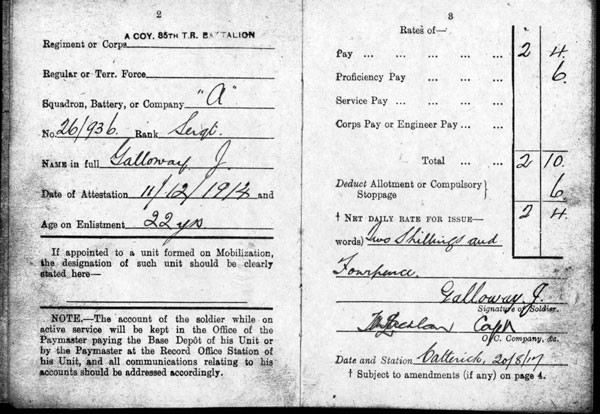 2
A COY. 85TH T.R. BATTALION
Regiment or Corps
Regular or Terr. Force
Squadron, Battery, or Company "A"
No. 26/936 Rank Sergt.
NAME in full Galloway J.
Date of Attestation 11/12/1914 and
Age on Enlistment 22 yrs
If appointed to a unit formed on Mobilization,
the designation of such unit should be clearly
stated here—
NOTE.—The account of the soldier while on
active service will be kept in the Office of the
Paymaster paying the Base Depôt of his Unit or
by the Paymaster at the Record Office Station of
his Unit, and all communications relating to his
accounts should be addressed accordingly.
3
Rates of—
Pay ... ... ... ... 2 4.
Proficiency Pay ... ... 6.
Service Pay ... ... ...
Corps Pay or Engineer Pay ... ...
Total ... ... 2 10.
Deduct Allotment or Compulsory } 6.
Stoppage
† NET DAILY RATE FOR ISSUE— 2 4.
words) Two Shillings and
Fourpence.
Galloway J.
Signature of Soldier.
Capt
O.C. Company, &c.
Date and Station Catterick, 20/8/17
† Subject to amendments (if any) on page 4.